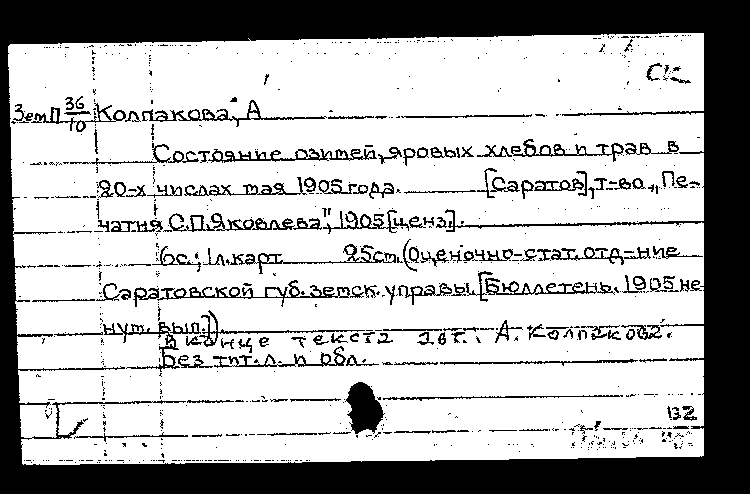 СК
ЗемП 36/10 Колпакова, А
Состояние озимей, яровых хлебов и трав в
20-х числах мая 1905 года. [Саратов], т-во „Пе-
чатня С.П.Яковлева", 1905 [ценз].
6с.; 1л.карт. 25см. (Оценочно-стат. отд-ние
Саратовской губ. земск. управы. [Бюллетень. 1905 не
нум. вып.]).
В конце текста авт.: А. Колпакова.
Без тит. л. и обл.
132